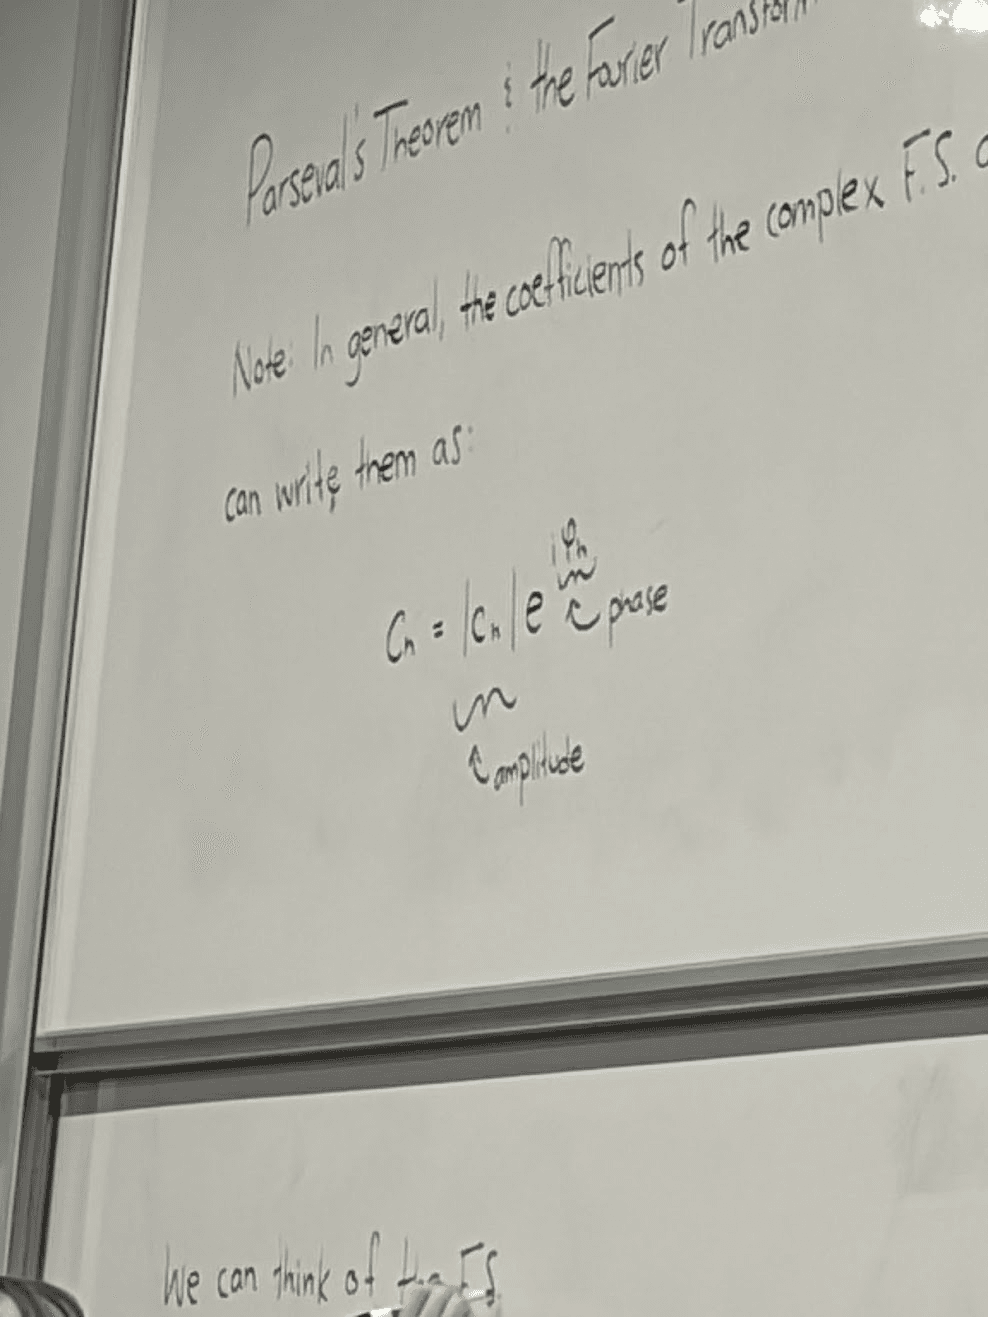 Parseval's Theorem & the Fourier Transform
Note: In general, the coefficients of the complex F.S.
can write them as:
Cₙ = |cₙ|e^{iφₙ}
phase
amplitude
We can think of the F.S.